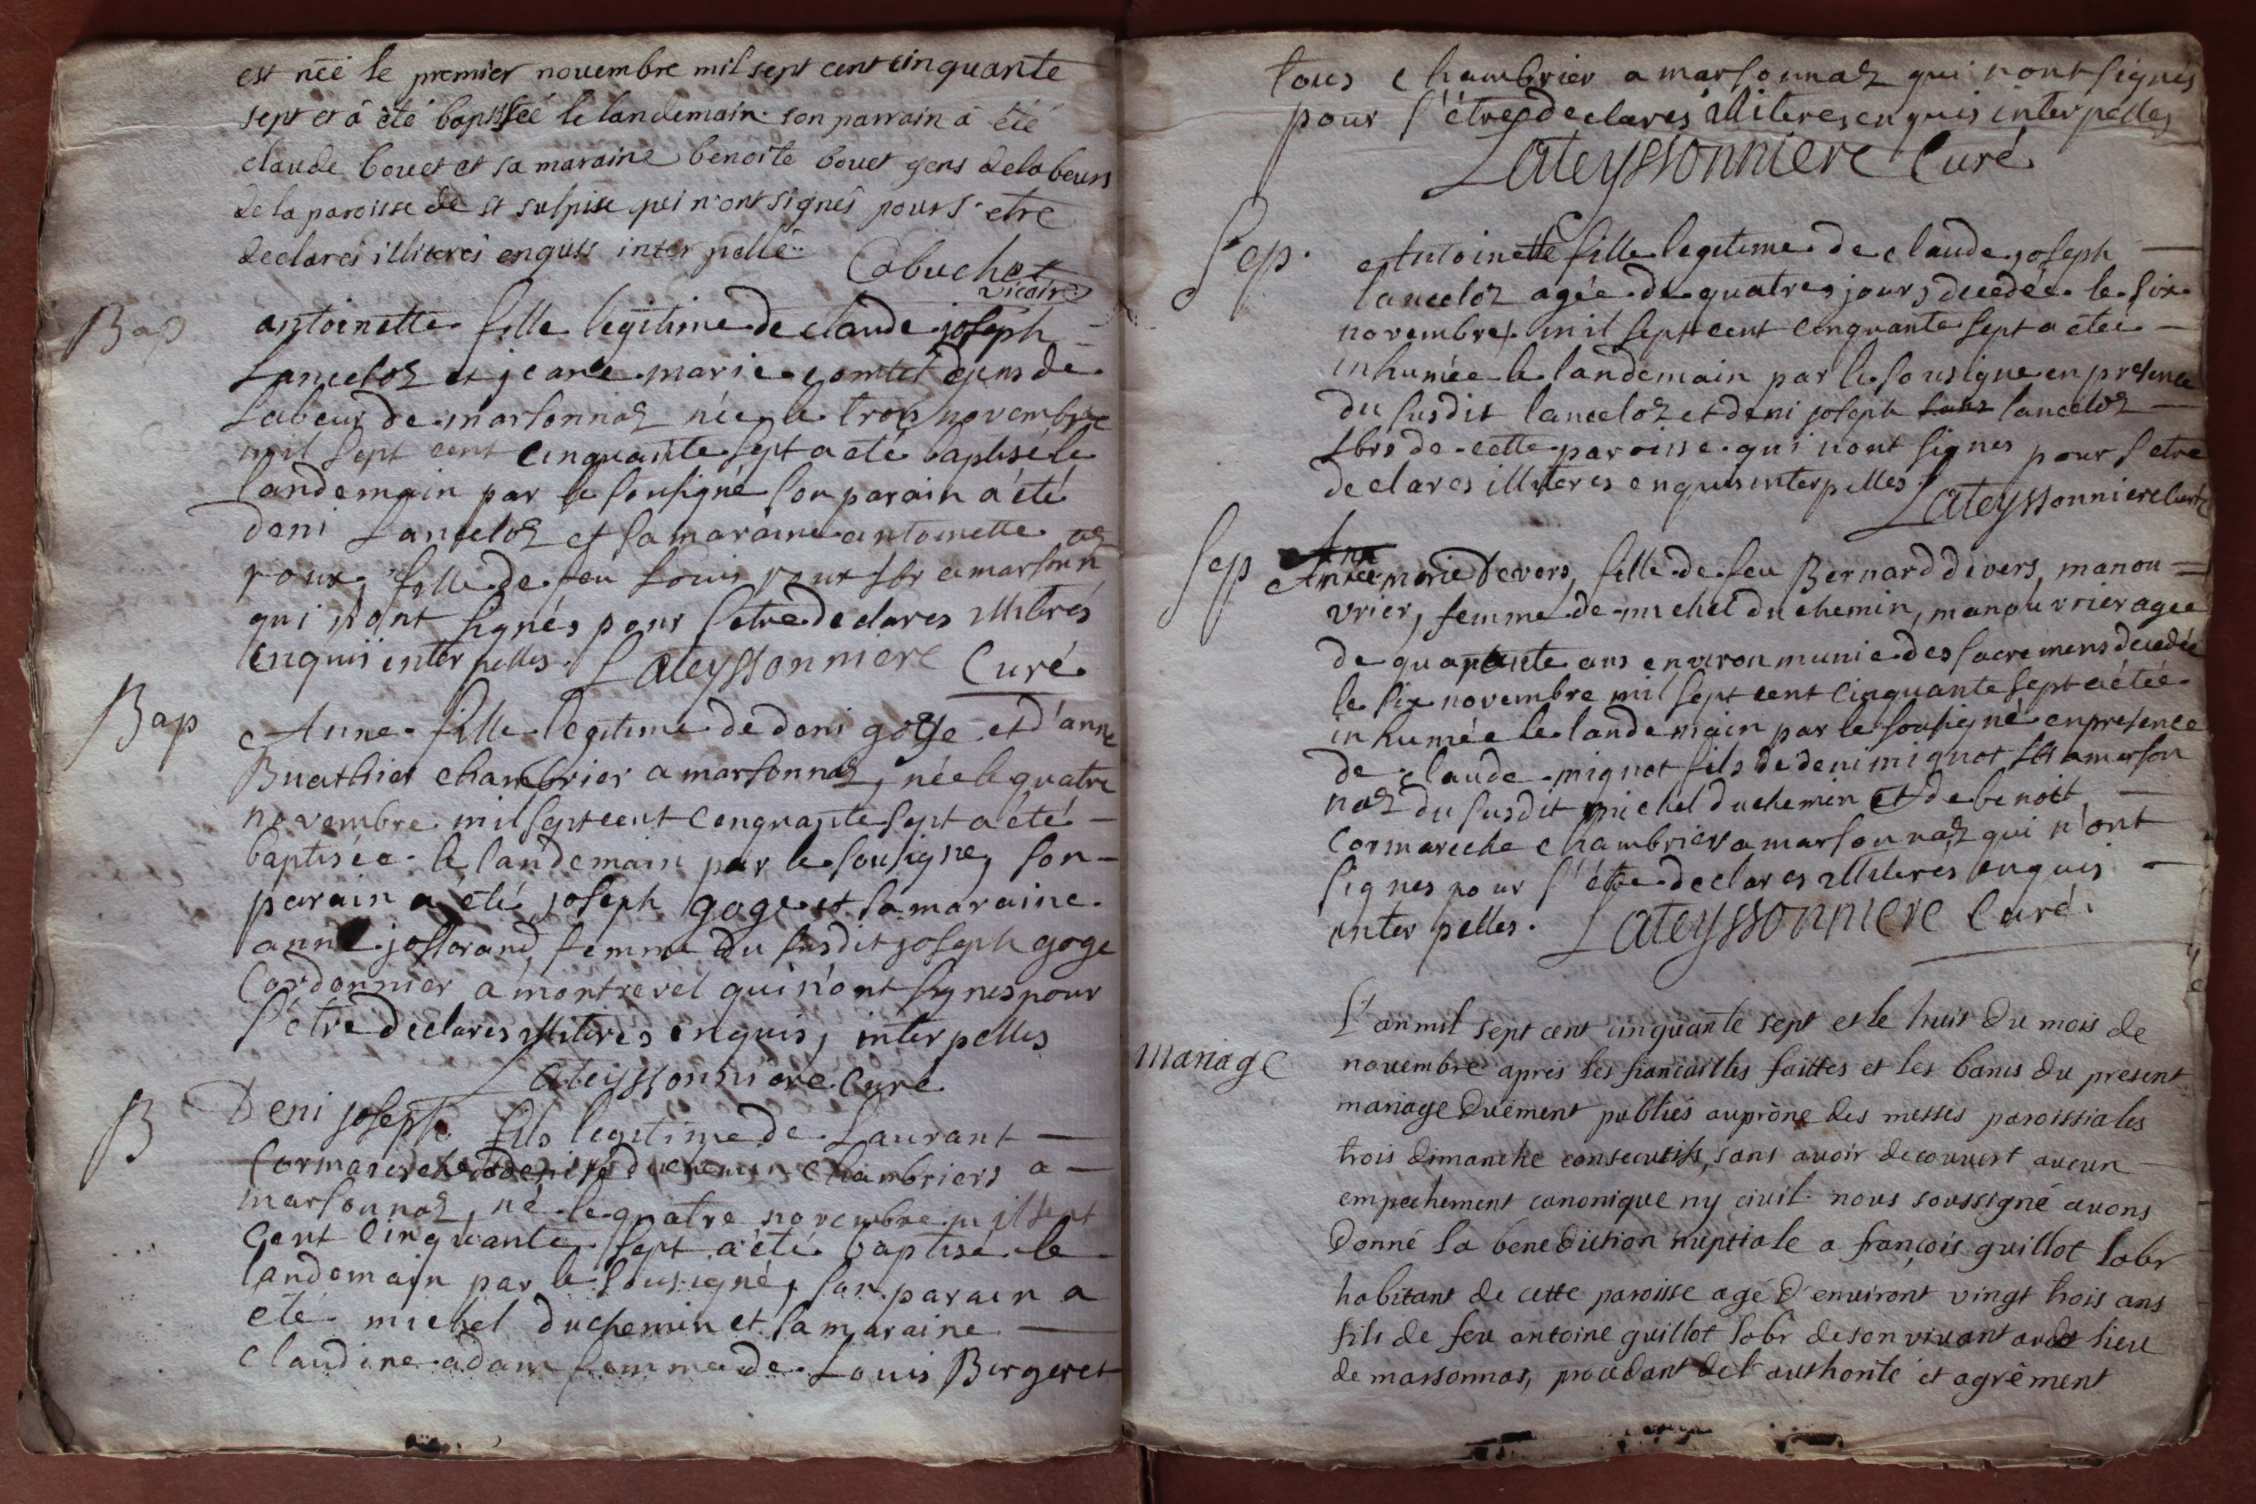 est néé le premier novembre mil sept cent cinquante
sept et â êté baptisée le landemain. son parrain â êté
claude bouet et sa maraine benoite bouet gens de labeurs
de la paroisse de st sulpise qui n'ont signês pour s'etre
declarês illiterês enquis interpellê. Cabuchet
vicaire
Bap antoinette fille legitime de claude joseph
Lanceloz et jeane marie comtet gens de
labeur de marsonnaz née le trois novembre
mil sept cent cinquante sept a été baptisé le
landemain par le sousigné son parain a été
deni Lanceloz et sa maraine antoinette
roux, fille de feu Louis roux lbr a marsonn az
qui n'ont signés pour s'etre declares illitrés
enquis interpelles. Lateyssonniere Curé
Bap Anne fille legitime de deni goge et d'anne
Buathier chambrier a marsonnaz, née le quatre
novembre mil sept cent cenquante sept a été
baptisée le landemain par le sousigne, son
parain a été joseph goge et sa maraine
anne josserand, femme du susdit joseph goge
Cordonnier a montrevel qui n'ont signes pour
s'être declares illiterés enquis, interpelles
Lateyssonniere Curé
B Deni joseph fils legitime de Laurant
Cormareche et denise duchemin chambriers a
marsonnaz, né le quatre novembre mil sept
cent cinquante sept a été baptisé le
landemain par le sousigné, son parain a
eté michel duchemin et sa maraine
claudine adam femme de Louis Bergeret
tous chambrier a marsonnaz qui n'ont signés
pour s'être declarés illiteres enquis interpelles
Lateyssonniere Curé
Sep. Antoinette fille legitime de claude joseph
lanceloz agée de quatres jours decedée le six
novembre mil sept cent cenquante sept a étée
inhumée le landemain par le sousigne en presence
du susdit lanceloz et deni joseph lanceloz
lbrs de cette paroisse qui n'ont signes pour s'etre
declares illiteres enquis interpelles. Lateyssonniere Curé
Sep Anne marie Devers, fille de feu Bernard devers, manou
vrier, femme de michel duchemin, manouvrier agee
de quarante ans environ munie des sacremens decedée
le six novembre mil sept cent cinquante sept a étée
inhumée le landemain par le sousigné en presence
de claude mignot fils de deni mignot lbr a marson
naz du susdit michel duchemin et de benoit
cormareche chambrier a marsonnaz qui n'ont
signes pour s'être declares illiterés enquis
interpelles. Lateyssonniere Curé.
Mariage L'an mil sept cent cinquante sept et le huit du mois de
novembre après les fiancailles faittes et les bancs du present
mariage Duëment publiés au prône des messes paroissiales
trois dimanche consecutifs, sans avoir decouvert aucun
empechement canonique ny civil. nous soussigné avons
Donné la benediction nuptiale a françois guillot labr
habitant de cette paroisse agé d'environt vingt trois ans
fils de feu antoine guillot labr de son vivant audt lieu
de marsonnas, procedant de l'authorité et agrêment